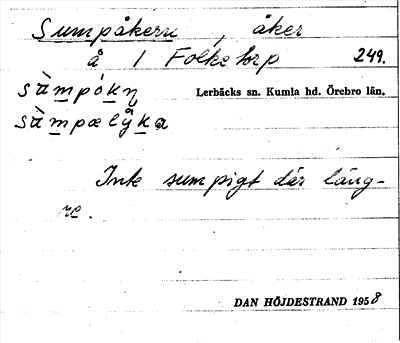 Sumpåkern, åker
å 1 Folketorp 249.
sàmpókn̥
Lerbäcks sn. Kumla hd. Örebro län.
Inte sumpigt där läng-
re.
DAN HÖJDESTRAND 1958